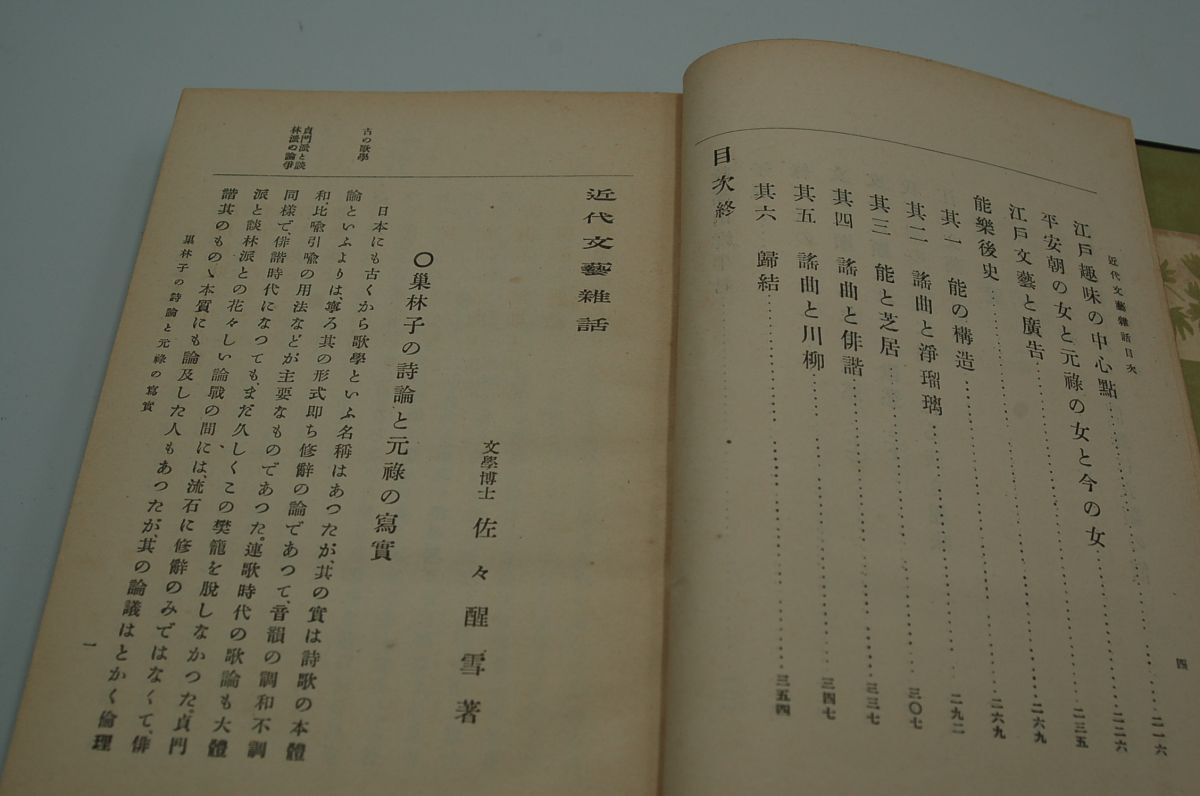 近代文藝雜話目次
江戸趣味の中心點……二一六
平安朝の女と元祿の女と今の女……二二六
江戸文藝と廣告……二三五
能樂後史……二六九
其一 能の構造……二六九
其二 謠曲と淨瑠璃……二九二
其三 能と芝居……三〇七
其四 謠曲と俳諧……三三七
其五 謠曲と川柳……三四七
其六 歸結……三五四
目次終
四
近代文藝雜話
文學博士 佐々醒雪著
〇巢林子の詩論と元祿の寫實
古の歌學
日本にも古くから歌學といふ名稱はあつたが、其の實は詩歌の本體
論といふよりは、寧ろ其の形式即ち修辭の論であつて、音韻の調和不調
和、比喩引喩の用法などが主要なものであつた。連歌時代の歌論も大體
同様で、俳諧時代になつても、まだ久しくこの樊籠を脱しなかつた。貞門
貞門派と談
林派の論爭
派と談林派との花々しい論戰の間には、流石に修辭のみではなくて、俳
諧其のものゝ本質にも論及した人もあつたが、其の論議はとかく倫理
巢林子の詩論と元祿の寫實
一